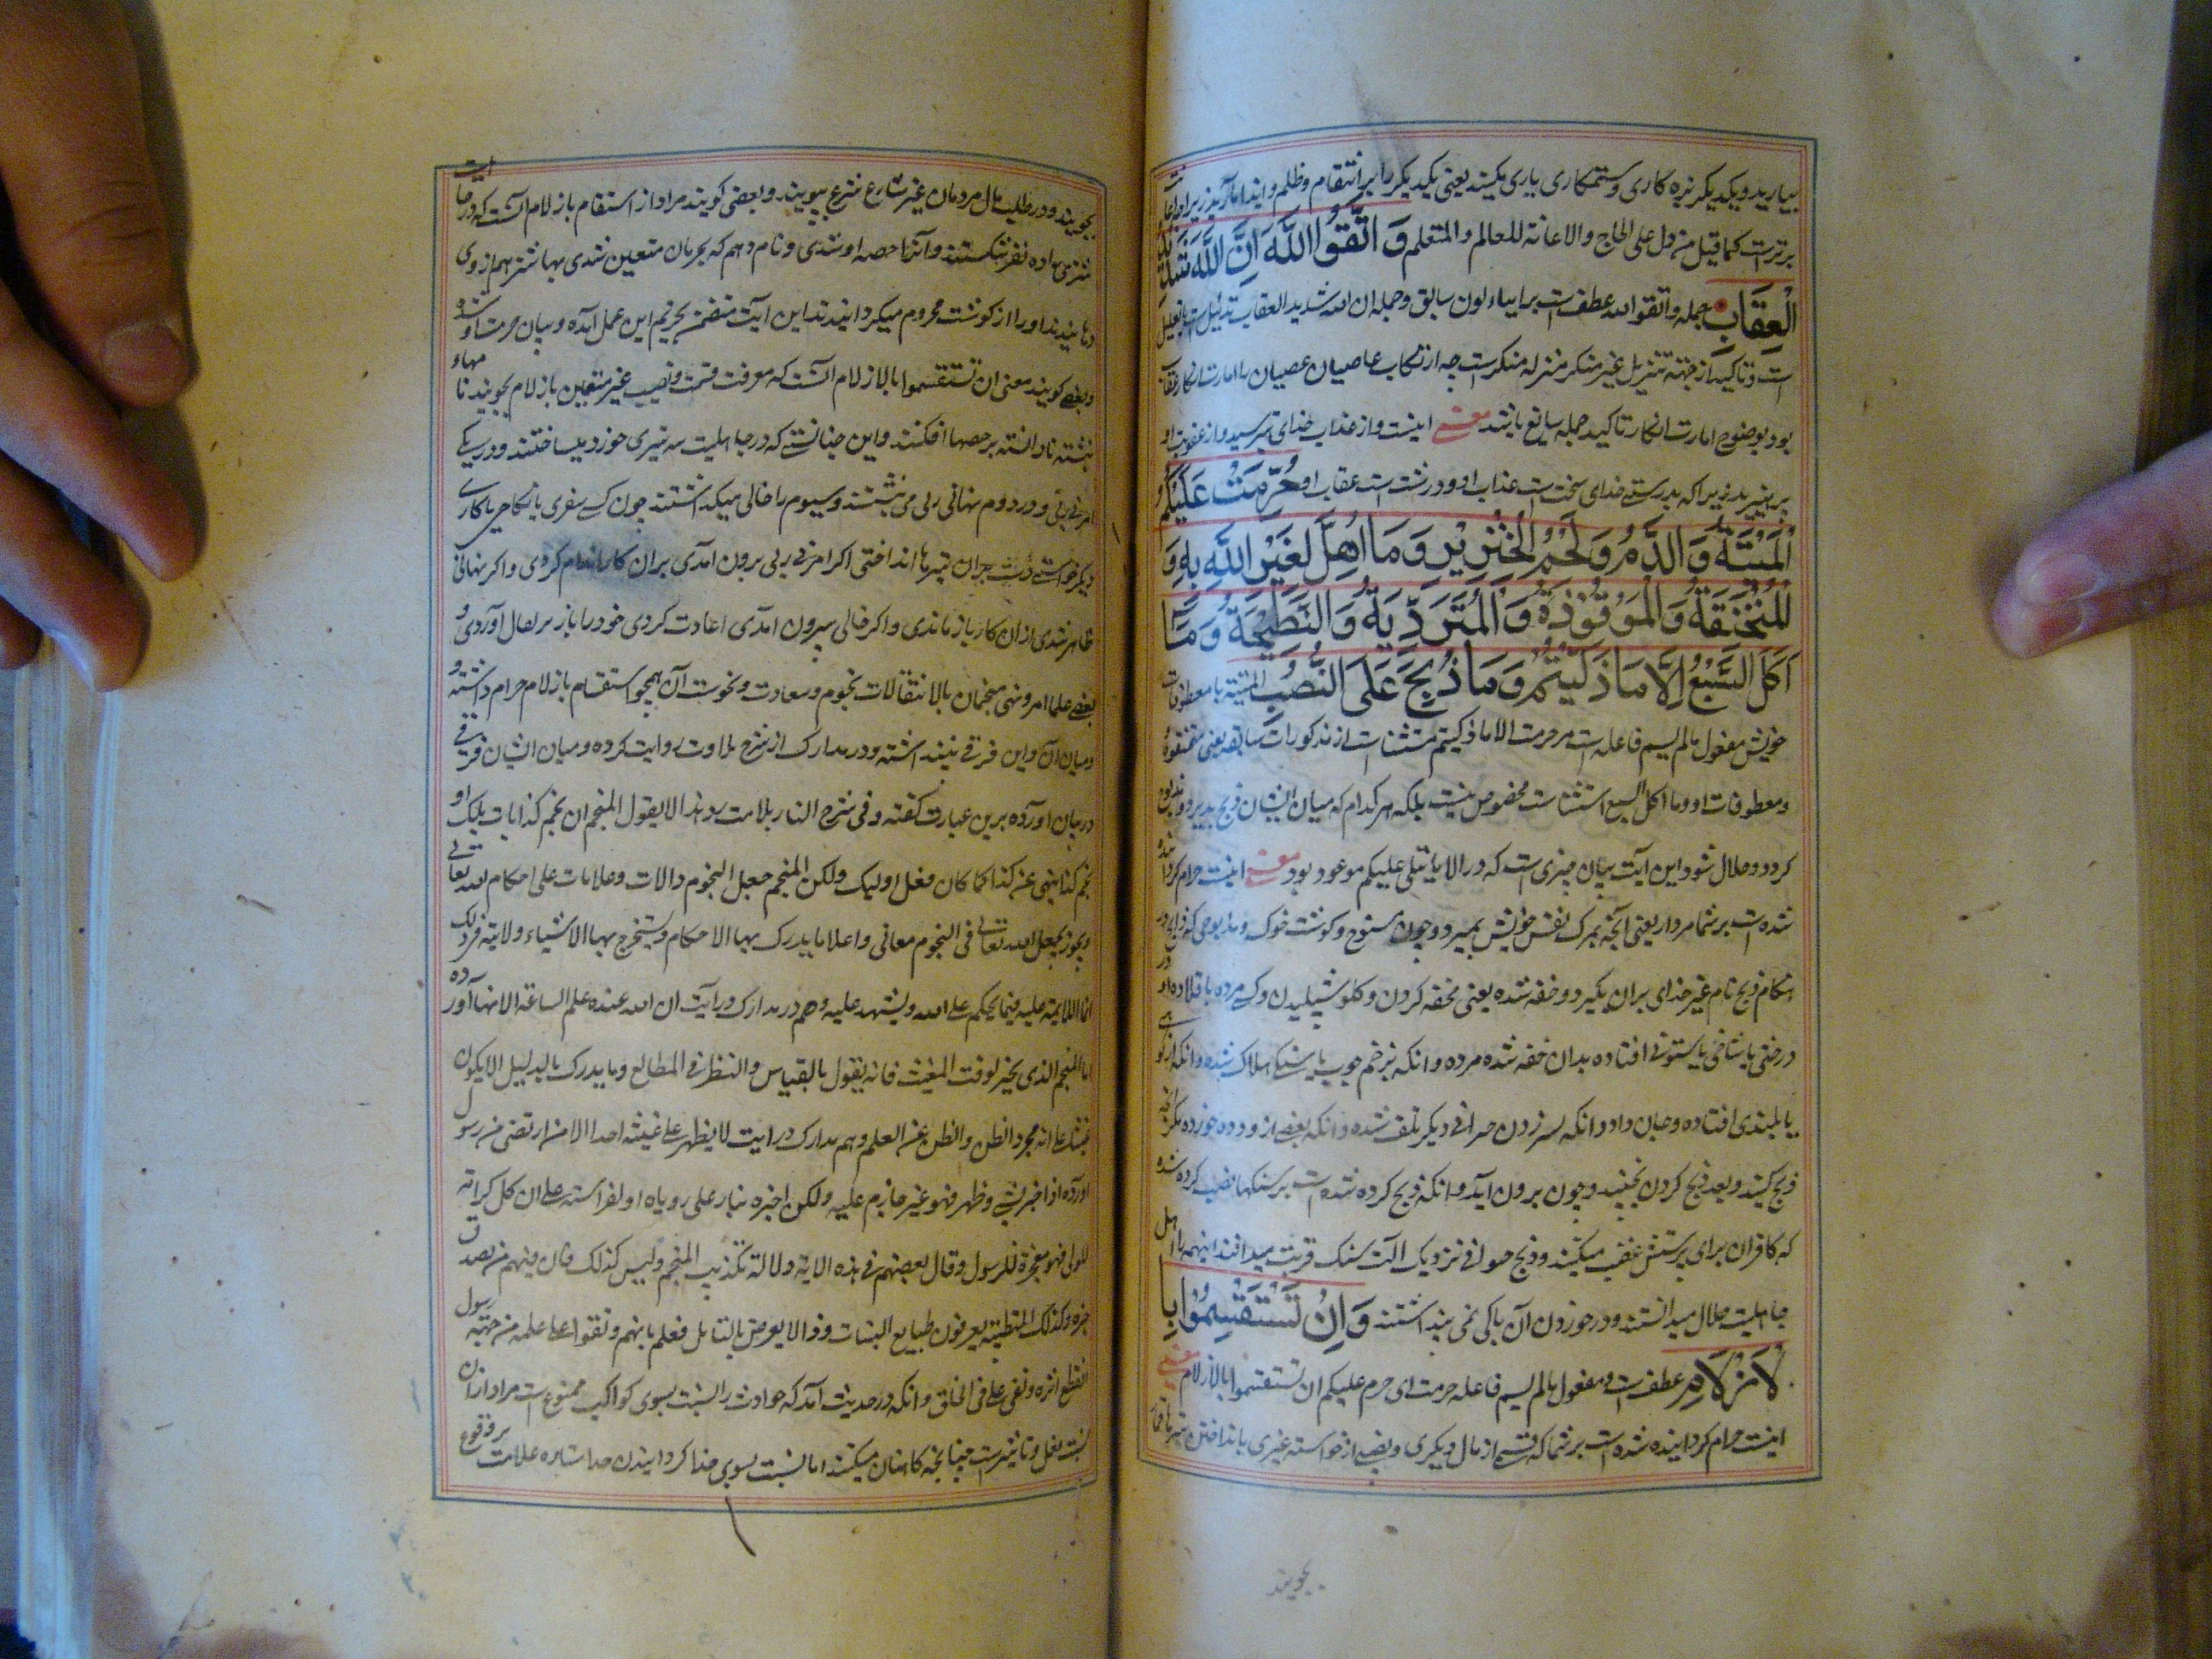 بیارید و یکدیگر بزه کاری و ستمکاری یاری مکنید یعنی یکدیگر را بر انتقام و ظلم و ایذا
برترست کما قیل من دل علی الحاج والاعانة للعالم والمتعلم وَاتَّقُوا اللَّهَ اِنَّ اللَّهَ شَدِيدُ
الْعِقَابِ جمله واتقوا الله عطف است بر ابیاء لون سابق و جمله ان الله شدید العقاب تذلیل است
است و تاکید از جهة تنزیل غیر منکر منزله منکرست چه ارتکاب عاصیان عصیان را امارت انکار عقاب
بود بوضوح امارت انکار تاکید جمله سایغ یابند معنی اینست و از عذاب خدای بترسید و از عقوبت او
بپرهیزید زیرا که بدرستی خدای سخت است عذاب او و درشت است عقاب او حُرِّمَتْ عَلَيْكُمُ
الْمَيْتَةُ وَالدَّمُ وَلَحْمُ الْخِنْزِيْرِ وَمَا اُهِلَّ لِغَيْرِ اللَّهِ بِهِ وَ
الْمُنْخَنِقَةُ وَالْمَوْقُوْذَةُ وَالْمُتَرَدِّيَةُ وَالنَّطِيْحَةُ وَمَا
اَكَلَ السَّبُعُ اِلَّا مَا ذَكَّيْتُمْ وَمَا ذُبِحَ عَلَى النُّصُبِ المیتة با معطوفات
خویش مفعول مالم یسم فاعله است مر حرمت الا ما ذکیتم مستثنا است از مذکورات سابقه یعنی منخنقه
و معطوفات او و ما اکل السبع استثناست مخصوص نیست بلکه هر کدام که میان ایشان ذبح پذیرد
کردد و حلال شود این آیت بیان چیزی است که در الا ما یتلی علیکم موعود بود معنی اینست حرام کردانیده
شده است بر شما مردار یعنی آنچه بمرک نفس خویش بمیرد و خون مسفوح و کوشت خوک و مذبوحی که
هنکام ذبح نام غیر خدای بران بگیرد و خفه شده یعنی مخفه کردن و کلو شپیلیدن و کسی مرده با قلاده او در
درختی یا شاخی یا ستونی افتاده بدان خفه شده مرده و انکه بزخم چوب یا سنکی هلاک شده و انکه از کوهی
یا بلندی افتاده و جان داد و انکه بسرزدن حیوانی دیگر تلف شده و انکه بعضی از و دده خورده مکر آنچه
ذبح کنید و بعد ذبح کردن بجنبد و خون برون آید و انکه ذبح کرده شده است بر سنکها نصب کرده شده
که کافران برای پرستش نصب میکنند و ذبح حیوانی نزدیک آلت سنک قربت میدانند اینهمه را اهل
جاهلیت حلال میدانستند و در خوردن آن باکی نمی پنداشتند وَاَنْ تَسْتَقْسِمُوْا بِا
لْاَزْلَامِ عطف است و مفعول مالم یسم فاعله حرمت ای حرم علیکم ان تستقسموا بالازلام معنی
اینست حرام کردانیده شده است بر شما که قسمی از مال دیگری و نصیب از خواسته غیری بانداختن تیرها
بجویند
بجویند و در طلب مال مردمان غیر شارع شرع بپویند و بعضی کویند مراد از استقسام بازلام آنست که در جاهلیت
شتری را ده نفر بکشتند و آنرا حصه او شدی و نام دهم که بحرمان متعین شدی بهای شتر هم از وی
دهانیدند و او را از کوشت محروم میکردانیدند این آیت متضمن تحریم این عمل آمده و بیان حرمت او شد و
بعضی کویند معنی ان تستقسموا بالازلام آنست که معرفت قسمت و نصیب غیر متعین بازلام بجویند تا مهاء
نبشته نادانسته بر حصها افکنند و این چنانست که در جاهلیت سه تیری خورد میساختند و در یکی
امرنی ربی و در دوم نهانی ربی می نبشتند و سیوم را خالی میکذاشتند چون کسی سفری یا نکاحی یا کاری
دیگر خواستی دست بران تیرها انداختی اکر امرنی ربی برون آمدی بران کار اقدام کردی و اکر نهانی
ظاهر شدی ازان کار باز ماندی و اکر خالی بیرون آمدی اعادت کردی خود را باز بر فال آوردی و
بعضی علما امر و نهی منجمان بالانتقالات نجوم و سعادت و نحوست آن همچو استقسام بازلام حرام داشته و
میان آن و این فرقی نپنداشته و در مدارک از شرح تاویلات روایت کرده و میان ایشان فرقی
در بیان آورده برین عبارت کفته و فی شرح التاویلات رد هذا لا یقول المنجم ان نجم کذا یات بک او
نجم کذا ینهی عن کذا کما کان فعل اولیک ولکن المنجم جعل النجوم دالات وعلامات علی احکام الله تعالی
ویجوز ان یجعل الله تعالی فی النجوم معانی واعلاما یدرک بها الاحکام ویستخرج بها الاشیاء ولا لایمة فی ذلک
انما اللایمة علیه فیما یحکم علی الله ویشهد علیه وهم در مدارک در آیت ان الله عنده علم الساعة الا انها آورده
اما المنجم الذی یخبر لوقت الغیث فانه یقول بالقیاس والنظر فی المطالع وما یدرک بالدلیل لا یکون
غیبا علی انه مجرد الظن والظن غیر العلم وهم مدارک در آیت لا یظهر علی غیبه احدا الا من ارتضی من رسول
آورده اذا اخبر بشیء وظهر فهو غیر جازم علیه ولکن اخبره بناء علی رویاه او لفراسته علی ان کل کرامة
للولی فهو معجزة للرسول وقال بعضهم فی هذه الایة دلالة تکذیب المنجم ولیس کذلک فان فیهم من یصدق
خبره وکذلک المتطببة یعرفون طبایع النبات وذا لا یعرف بالتامل فعلم بانهم وقفوا علی علمه من جهة رسول
انقطع اثره وبقی علمه فی الخلق و انکه در حدیث آمد که حوادث را نسبت بسوی کواکب ممنوع است مراد ازان
نسبت فعل و تاثیرست چنانچه کاهنان میکنند اما نسبت بسوی خدا کردانیدن ستاره علامت بر وقوع